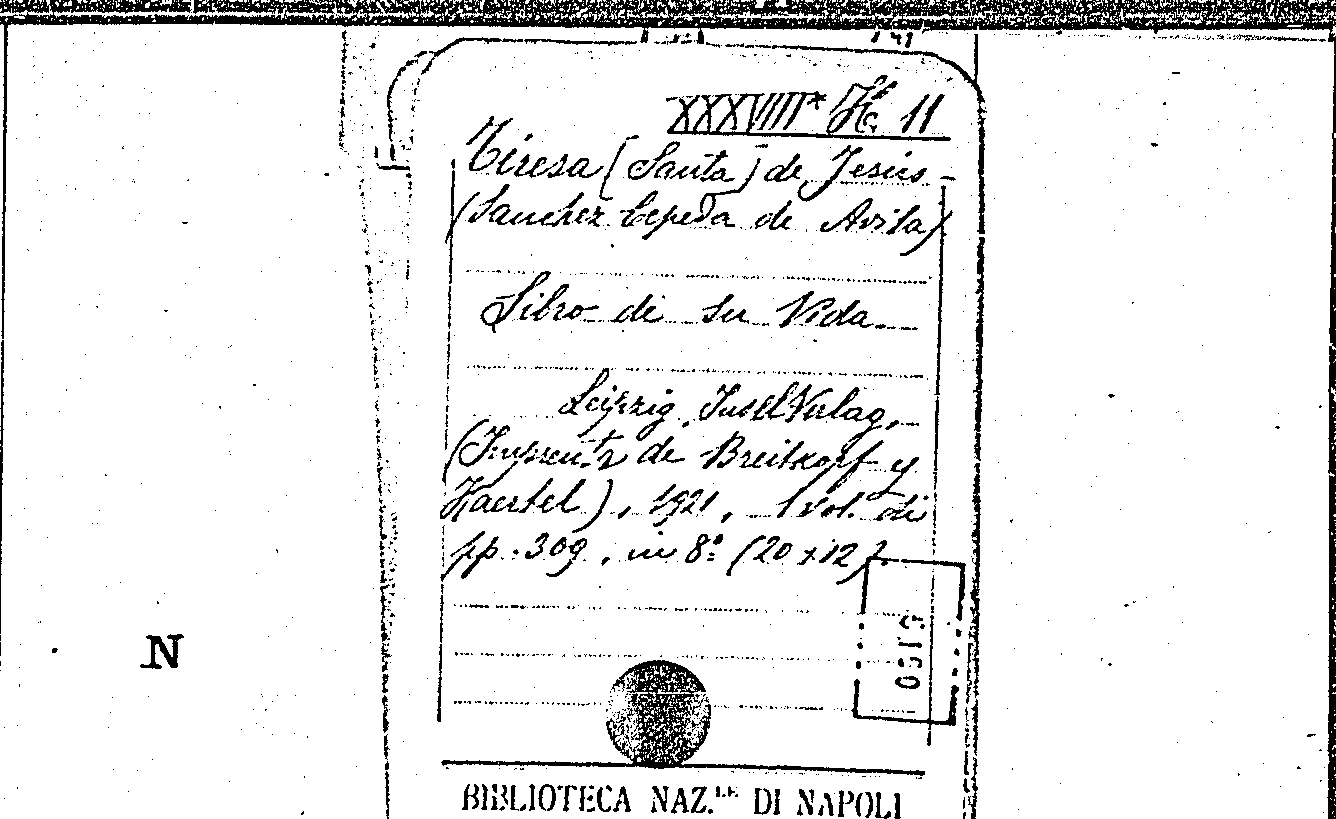 XXXVIII* Hc 11
Teresa (Santa) de Jesús -
(Sanchez Cepeda de Avila)
Libro de su Vida
Leipzig, Insel Verlag,
(Imprenta de Breitkopf y
Haertel), 1921, 1 vol. di
pp. 309, in 8º (20 x 12).
N
BIBLIOTECA NAZ.LE DI NAPOLI